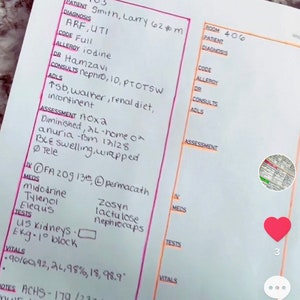 PATIENT Smith, Larry 62 m
DIAGNOSIS
ARF, UTI
CODE Full
ALLERGY iodine
DR Hamzavi
CONSULTS nephro, ID, PTOTSW
ADLS
↑SD, walker, renal diet,
incontinent
ASSESSMENT AOx2
Diminished, 2L-home O2
anuria - BM 12/28
BLE swelling, wrapped
Ø Tele
IV permacath
MEDS
midodrine
Tylenol
Eliquis
Zosyn
lactulose
nephrocaps
TESTS
US Kidneys -
EKG - 1° block
VITALS
90/60, 92, 2L, 98%, 18, 98.9°
NOTES ACHS -
ROOM 406
PATIENT
DIAGNOSIS
CODE
ALLERGY
DR
CONSULTS
ADLS
ASSESSMENT
IV
MEDS
TESTS
VITALS
3